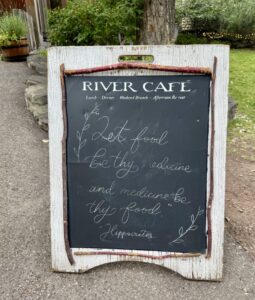 RIVER CAFE
Lunch · Dinner · Weekend Brunch · Afternoon
"Let food
be thy medicine
and medicine be
thy food."
Hippocrates